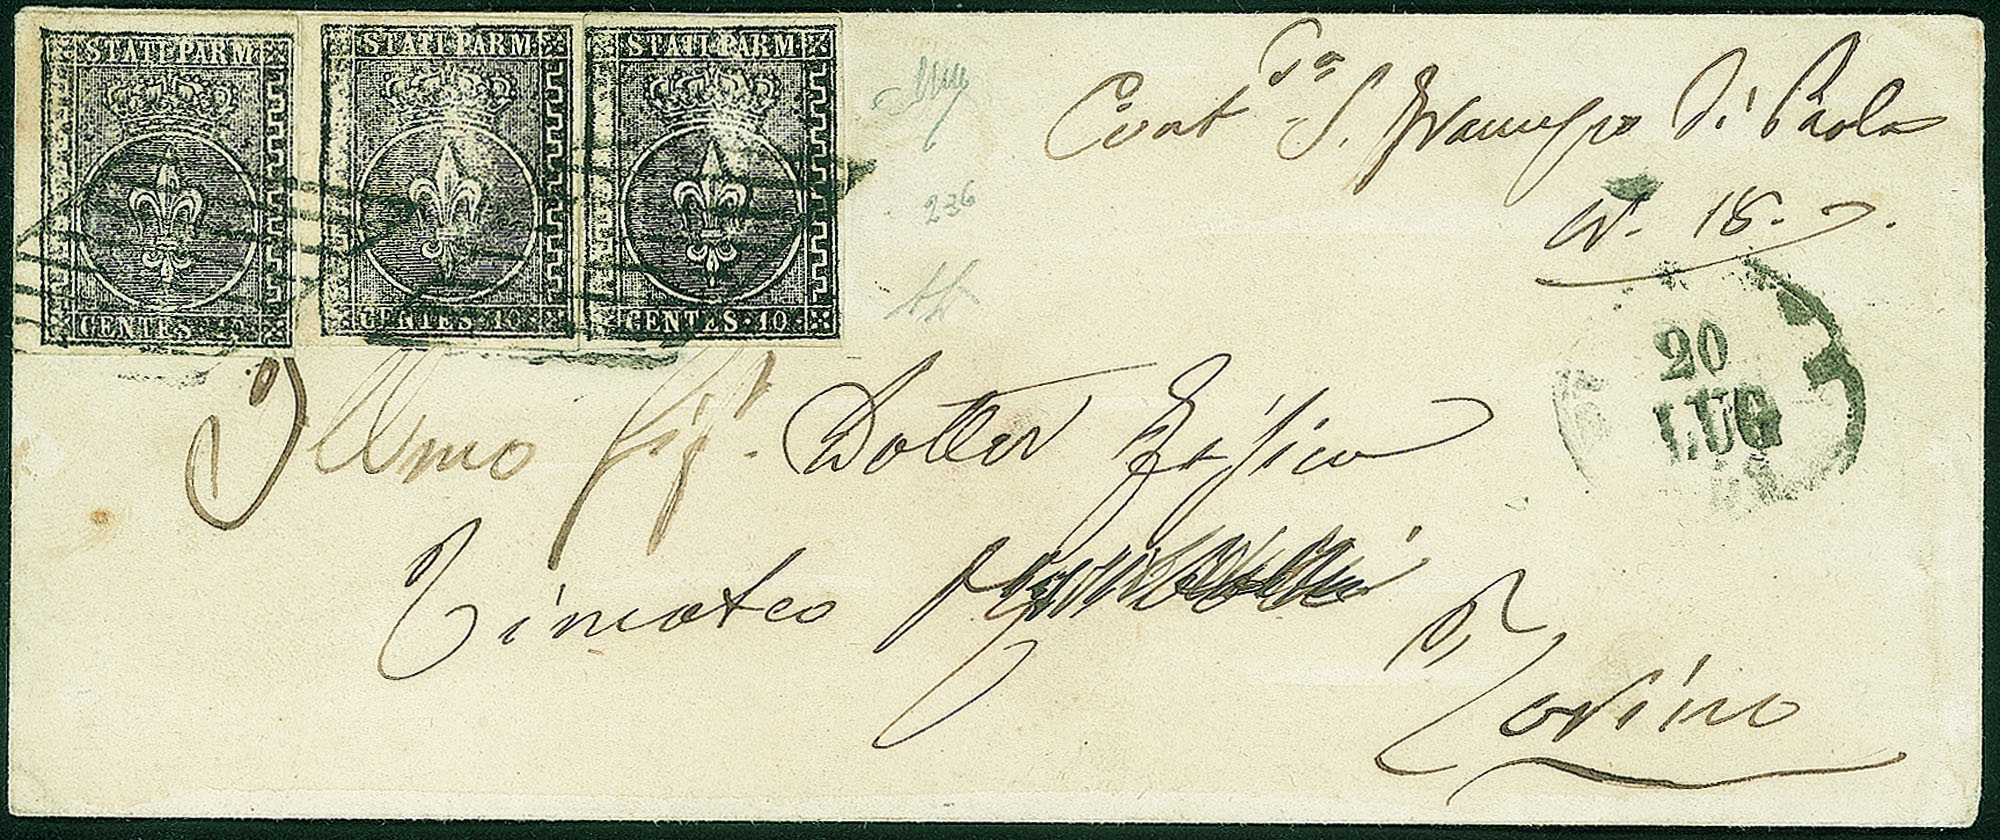 STATI PARM
CENTES. 10
STATI PARM
CENTES. 10
STATI PARM
CENTES. 10
236
Cont.da S. Francesco Di Paola
N. 18.
20
LUG
Illmo Sig.r Dotter Fisico
Timoteo
Torino